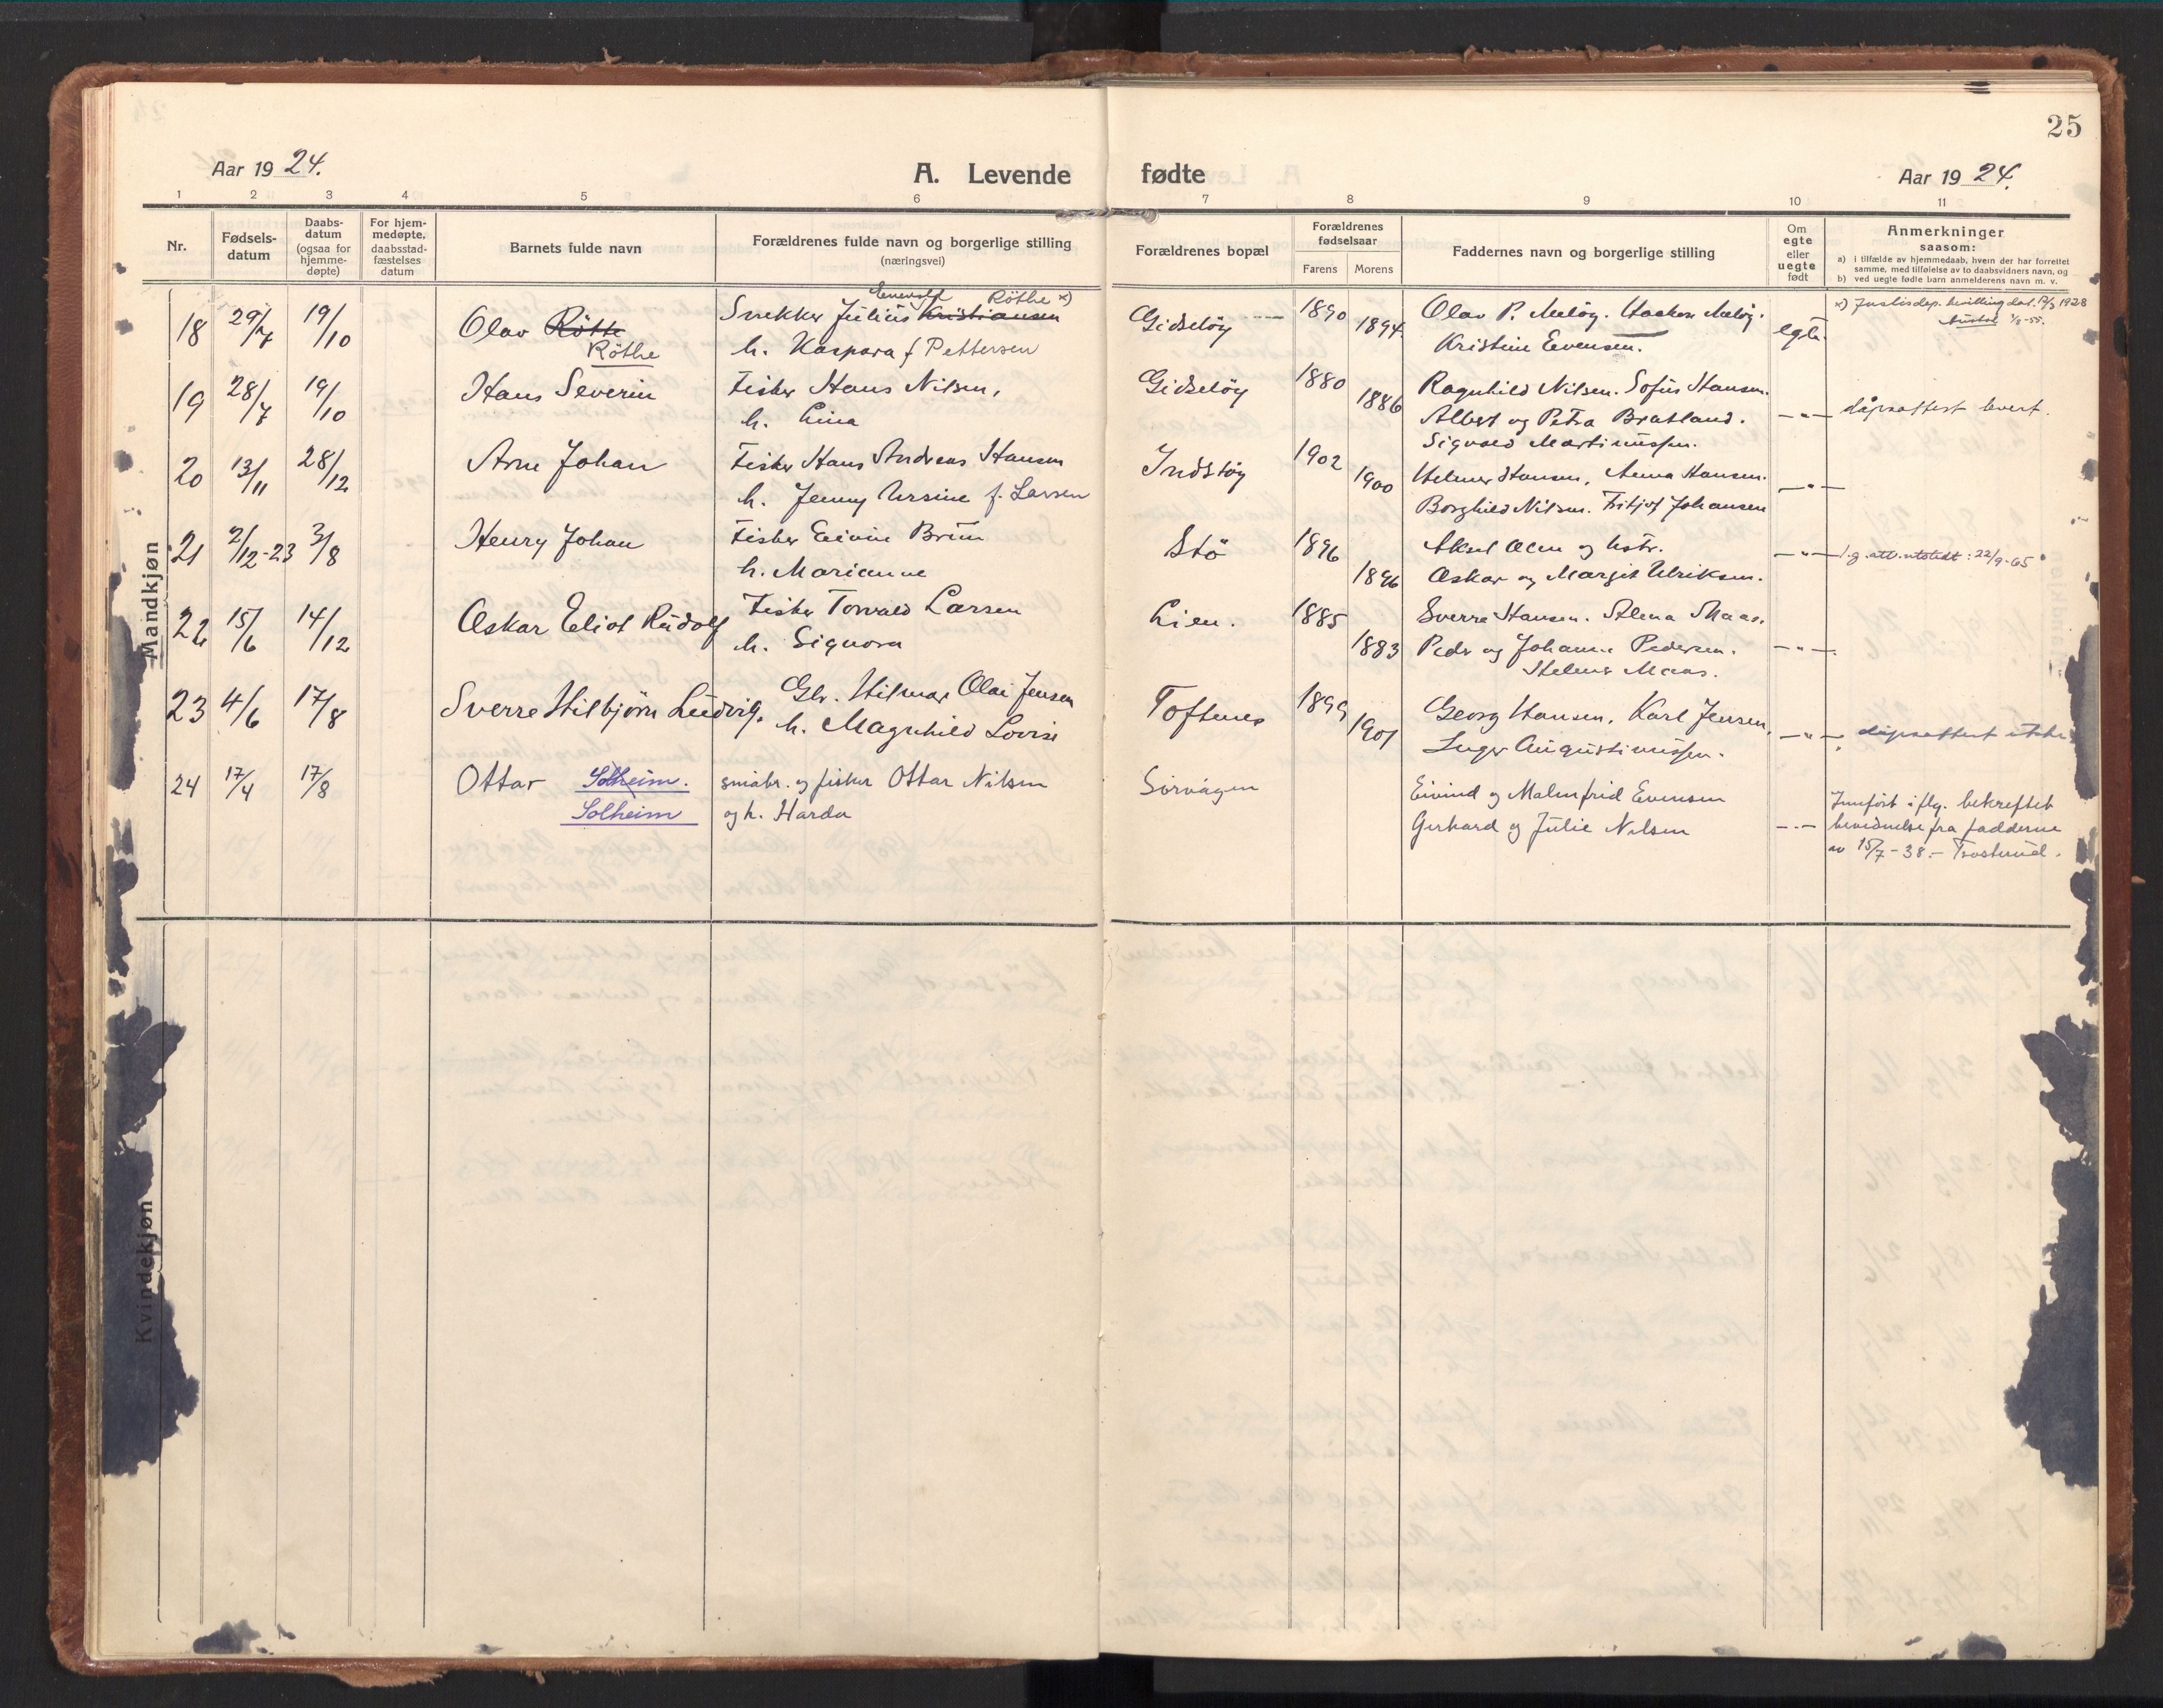 25
Aar 1924.
A. Levende fødte
Aar 1924.
1 2 3 4 5 6 7 8 9 10 11
Nr.
Fødsels-
datum
Daabs-
datum
(ogsaa for
hjemme-
døpte)
For hjem-
medøpte,
daabsstad-
fæstelses
datum
Barnets fulde navn
Forældrenes fulde navn og borgerlige stilling
(næringsvei)
Forældrenes bopæl
Forældrenes
fødselsaar
Farens Morens
Faddernes navn og borgerlige stilling
Om
egte
eller
uegte
født
Anmerkninger
saasom:
a) i tilfælde av hjemmedaab, hvem der har forrettet
samme, med tilføielse av to daabsvidners navn, og
b) ved uegte fødte barn anmelderens navn m. v.
Mandkjøn
18 29/7 19/10 Olav Rötte Snekker Julius Kristiansen Röthe x) Gidsløy 1890 Olav P. Meløy. Haakon Meløy. x) Justisdep. bevilling dat. 1928
Röthe h. Kaspara f Pettersen 1894. Kristine Evensen. egte.
19 28/7 19/10 Hans Severin Fisker Hans Nilsen, Gidsløy 1880 Ragnhild Nilsen. Sofus Hansen.
h. Lina 1886 Albert og Petra Bratland. -"- dåpsattest levert.
Sigvald Martinussen.
20 13/11 28/12 Arne Johan Fisker Hans Andreas Hansen Indstöy 1902 Helmer Hansen, Anna Hansen.
h. Jenny Ursine f. Larsen 1900 Borghild Nilsen. Fritjof Johansen -"-
21 2/12-23 3/8 Henry Johan Fisker Eivin Brun Stö 1896 Aksel Olsen og hstr. -"- l.g. att. utstedt: 22/9-65
h. Marianne 1896 Oskar og Margit Ulriksen.
22 15/6 14/12 Oskar Eliot Rudolf Fisker Torvald Larsen Lien. 1885 Sverre Hansen. Alena Maas.
h. Signora 1883 Peder og Johanne Pedersen. -"-
Helmer Maas.
23 4/6 17/8 Sverre Hilbjörn Ludvig. Gbr. Hilmar Olai Jensen Toftenes 1899 Georg Hansen, Karl Jensen,
h. Magnhild Lovise 1901 Inger Augustinussen. -"- dåpsattest
24 17/4 17/8 Ottar Solheim. småbr. og fisker Ottar Nilsen Sörvågen Eivind og Malmfrid Evensen Innført iflg. bekreftet
Solheim og h. Harda Gerhard og Julie Nilsen -"- bevidnelse fra fadderne
av 15/7-38.- Trosterud.
Kvindekjøn